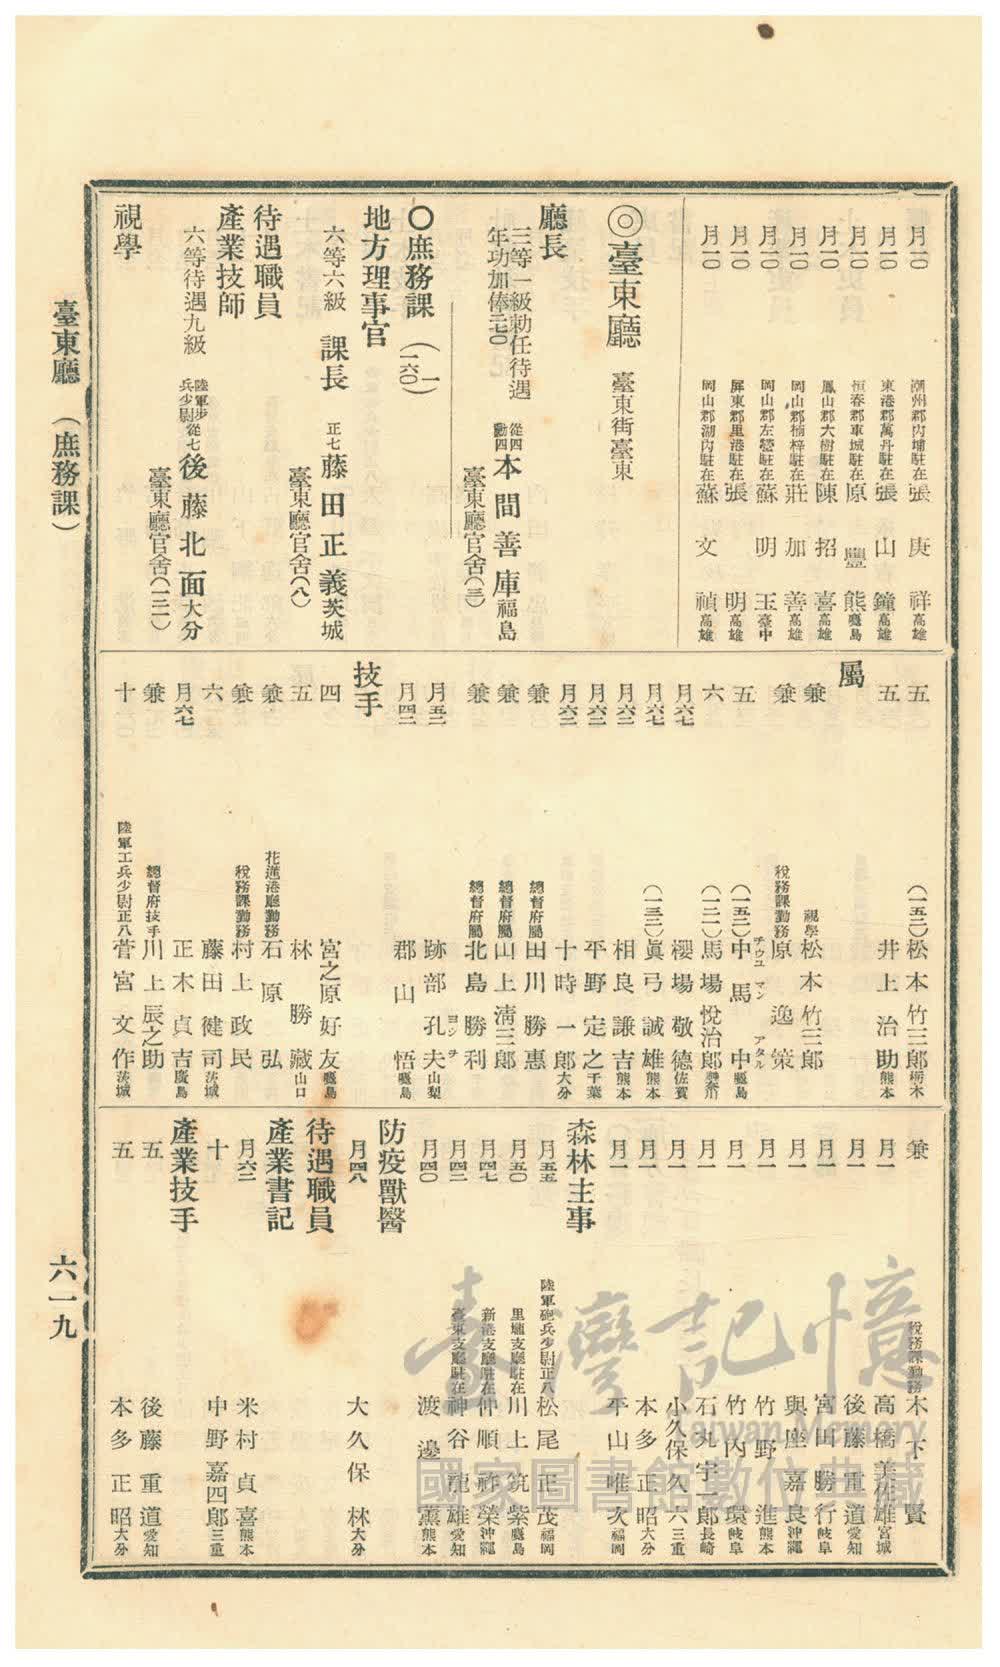 月一〇 潮州郡內埔駐在 張庚祥 高雄
月一〇 東港郡萬丹駐在 張山鐘 高雄
月一〇 恒春郡車城駐在 原豐熊 鹿兒島
月一〇 鳳山郡大樹駐在 陳招喜 高雄
月一〇 岡山郡楠梓駐在 莊加善 高雄
月一〇 岡山郡左營駐在 蘇明玉 臺中
月一〇 屏東郡里港駐在 張明 高雄
月一〇 岡山郡湖內駐在 蘇文禎 高雄
◎臺東廳 臺東街臺東
廳長
三等一級勅任待遇
年功加俸二七〇 從四勳四 本間善庫 福島
臺東廳官舍(三)
〇庶務課(一一六〇)
地方理事官
六等六級 課長 正七 藤田正義 茨城
臺東廳官舍(八)
待遇職員
產業技師
六等待遇九級 陸軍步兵少尉從七 後藤北面 大分
臺東廳官舍(一二一)
視學
五 (一五二) 松本竹三郎 栃木
五 井上治助 熊本
屬
兼 視學 松本竹三郎
兼 稅務課勤務 原逸策
五 (一五二) 中馬中 鹿兒島
チウユ マン アタル
六 (一二一) 馬場悅治郎 神奈川
月六七 櫻場敬德 佐賀
月六七 (一三二) 眞弓誠雄 熊本
月六二 相良謙吉 熊本
月六二 平野定之 千葉
月六二 十時一郎 大分
兼 總督府屬 田川勝惠
兼 總督府屬 山上淸三郎
兼 總督府屬 北島勝利
月五二 跡部孔夫 山梨
ヨシ ヲ
月四二 郡山悟 鹿兒島
技手
四 宮之原好友 鹿兒島
五 林勝藏 山口
兼 花蓮港廳勤務 石原弘
兼 稅務課勤務 村上政民
六 藤田健司 茨城
月六七 正木貞吉 廣島
兼 總督府技手 川上辰之助
十 陸軍工兵少尉正八 菅宮文作 茨城
兼 稅務課勤務 木下賢
月一 高橋美佐雄 宮城
月一 後藤重道 愛知
月一 宮田勝行 岐阜
月一 與座嘉良 沖繩
月一 竹野進 熊本
月一 竹內環 岐阜
月一 石丸宇一郎 長崎
月一 小久保久六 三重
月一 本多正昭 大分
月一 平山唯次 福岡
森林主事
月五五 陸軍砲兵少尉正八 松尾正茂 福岡
月五〇 里壠支廳駐在 川上筑紫 鹿兒島
月四七 新港支廳駐在 仲順祚榮 沖繩
月四二 臺東支廳駐在 神谷龍雄 愛知
月四〇 渡邊薰 熊本
防疫獸醫
月四八 大久保林 大分
待遇職員
產業書記
月六二 米村貞喜 熊本
十 中野嘉四郎 三重
產業技手
五 後藤重道 愛知
五 本多正昭 大分
臺東廳 (庶務課)
六一九
臺灣記憶
Taiwan Memory
國家圖書館數位典藏